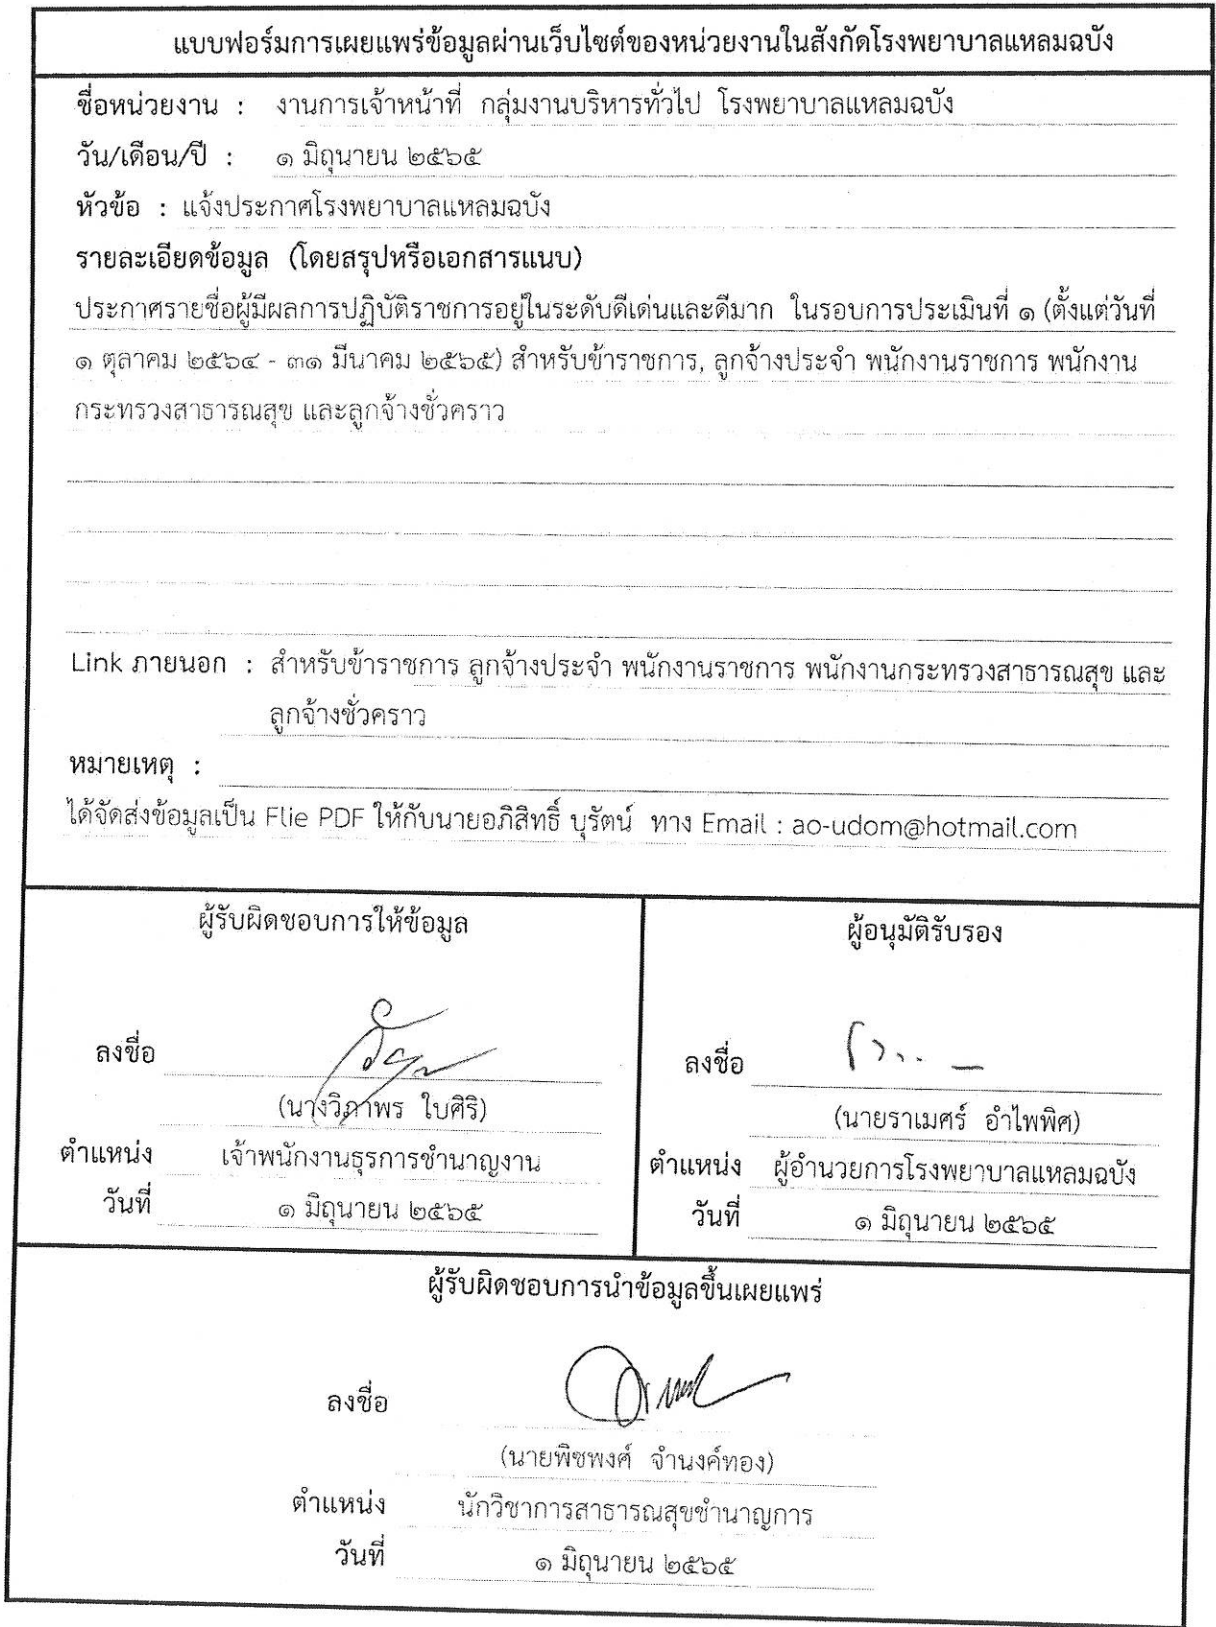 แบบฟอร์มการเผยแพร่ข้อมูลผ่านเว็บไซต์ของหน่วยงานในสังกัดโรงพยาบาลแหลมฉบัง
ชื่อหน่วยงาน : งานการเจ้าหน้าที่ กลุ่มงานบริหารทั่วไป โรงพยาบาลแหลมฉบัง
วัน/เดือน/ปี : ๑ มิถุนายน ๒๕๖๕
หัวข้อ : แจ้งประกาศโรงพยาบาลแหลมฉบัง
รายละเอียดข้อมูล (โดยสรุปหรือเอกสารแนบ)
ประกาศรายชื่อผู้มีผลการปฏิบัติราชการอยู่ในระดับดีเด่นและดีมาก ในรอบการประเมินที่ ๑ (ตั้งแต่วันที่
๑ ตุลาคม ๒๕๖๔ - ๓๑ มีนาคม ๒๕๖๕) สำหรับข้าราชการ, ลูกจ้างประจำ พนักงานราชการ พนักงาน
กระทรวงสาธารณสุข และลูกจ้างชั่วคราว
Link ภายนอก : สำหรับข้าราชการ ลูกจ้างประจำ พนักงานราชการ พนักงานกระทรวงสาธารณสุข และ
ลูกจ้างชั่วคราว
หมายเหตุ :
ได้จัดส่งข้อมูลเป็น Flie PDF ให้กับนายอภิสิทธิ์ บุรัตน์ ทาง Email : ao-udom@hotmail.com
ผู้รับผิดชอบการให้ข้อมูล
ลงชื่อ
(นางวิภาพร ใบศิริ)
ตำแหน่ง เจ้าพนักงานธุรการชำนาญงาน
วันที่ ๑ มิถุนายน ๒๕๖๕
ผู้อนุมัติรับรอง
ลงชื่อ
(นายราเมศร์ อำไพพิศ)
ตำแหน่ง ผู้อำนวยการโรงพยาบาลแหลมฉบัง
วันที่ ๑ มิถุนายน ๒๕๖๕
ผู้รับผิดชอบการนำข้อมูลขึ้นเผยแพร่
ลงชื่อ
(นายพิชพงศ์ จำนงค์ทอง)
ตำแหน่ง นักวิชาการสาธารณสุขชำนาญการ
วันที่ ๑ มิถุนายน ๒๕๖๕